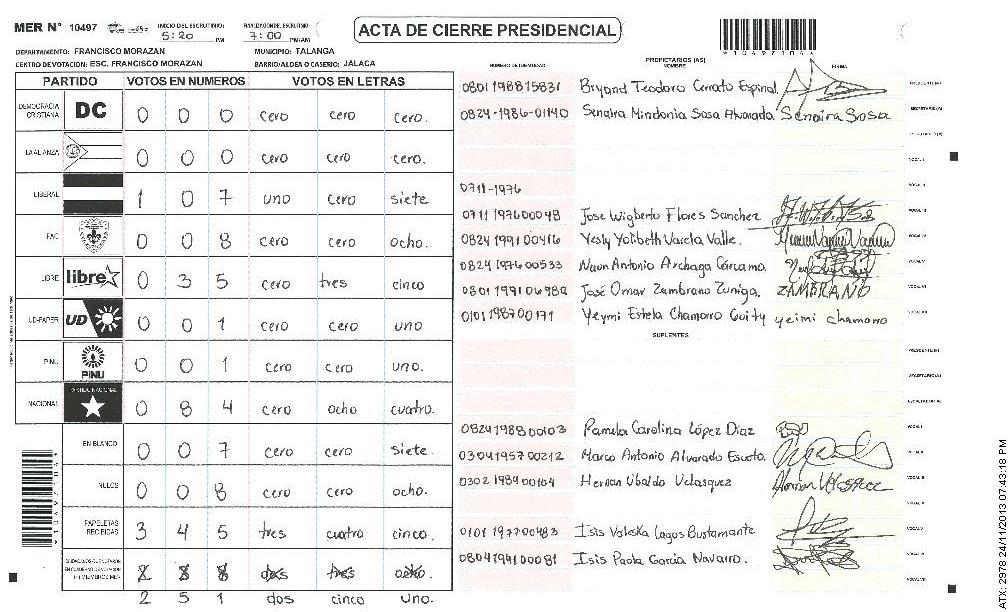 MER N° 10497 INICIO DEL ESCRUTINIO: 5:20 PM FINALIZACION DEL ESCRUTINIO: 7:00 PM/AM
ACTA DE CIERRE PRESIDENCIAL
*10497104*
DEPARTAMENTO: FRANCISCO MORAZAN MUNICIPIO: TALANGA
CENTRO DE VOTACION: ESC. FRANCISCO MORAZAN BARRIO/ALDEA O CASERIO: JALACA
PARTIDO VOTOS EN NUMEROS VOTOS EN LETRAS
DEMOCRACIA CRISTIANA DC 0 0 0 cero cero cero.
LA ALIANZA 0 0 0 cero cero cero.
LIBERAL 1 0 7 uno cero siete
FAC 0 0 8 cero cero ocho.
LIBRE libre 0 3 5 cero tres cinco
UD-FAPER UD 0 0 1 cero cero uno
PINU PINU 0 0 1 cero cero uno.
NACIONAL PARTIDO NACIONAL 0 8 4 cero ocho cuatro.
EN BLANCO 0 0 7 cero cero siete.
NULOS 0 0 8 cero cero ocho.
PAPELETAS RECIBIDAS 3 4 5 tres cuatro cinco.
CIUDADANOS QUE VOTARON EN CUADERNO DE VOTACION (+) MIEMBROS MER dos tres ocho.
2 5 1 dos cinco uno.
NUMERO DE IDENTIDAD PROPIETARIOS (AS) NOMBRE FIRMA
0801198815831 Bryand Teodoro Cerrato Espinal PRESIDENTE (A)
0824-1986-01140 Senaira Mindonia Sosa Alvarado Senaira Sosa SECRETARIO (A)
ESCRUTADOR (A)
VOCAL I
0711-1976 VOCAL II
0711 197600048 Jose Wigberto Flores Sanchez VOCAL III
0824 199100416 Yesly Yolibeth Varela Valle. VOCAL IV
0824 197600533 Nuon Antonio Archaga Cárcamo. VOCAL V
0801 199106989 José Omar Zambrano Zuniga. ZAMBRANO VOCAL VI
0101 198700171 Yeymi Estela Chamorro Guity yeimi chamorro VOCAL VII
SUPLENTES
PRESIDENTE (A)
SECRETARIO (A)
ESCRUTADOR (A)
0824198800103 Pamela Carolina López Díaz VOCAL I
0304195700212 Marco Antonio Alvarado Escoto. VOCAL II
0302 198900104 Hernan Ubaldo Velasquez VOCAL III
VOCAL IV
0101 197700483 Isis Valeska Lagos Bustamante VOCAL V
0804199100081 Isis Paola García Navarro. VOCAL VI
VOCAL VII
ATX: 2978 24/11/2013 07:43:18 PM